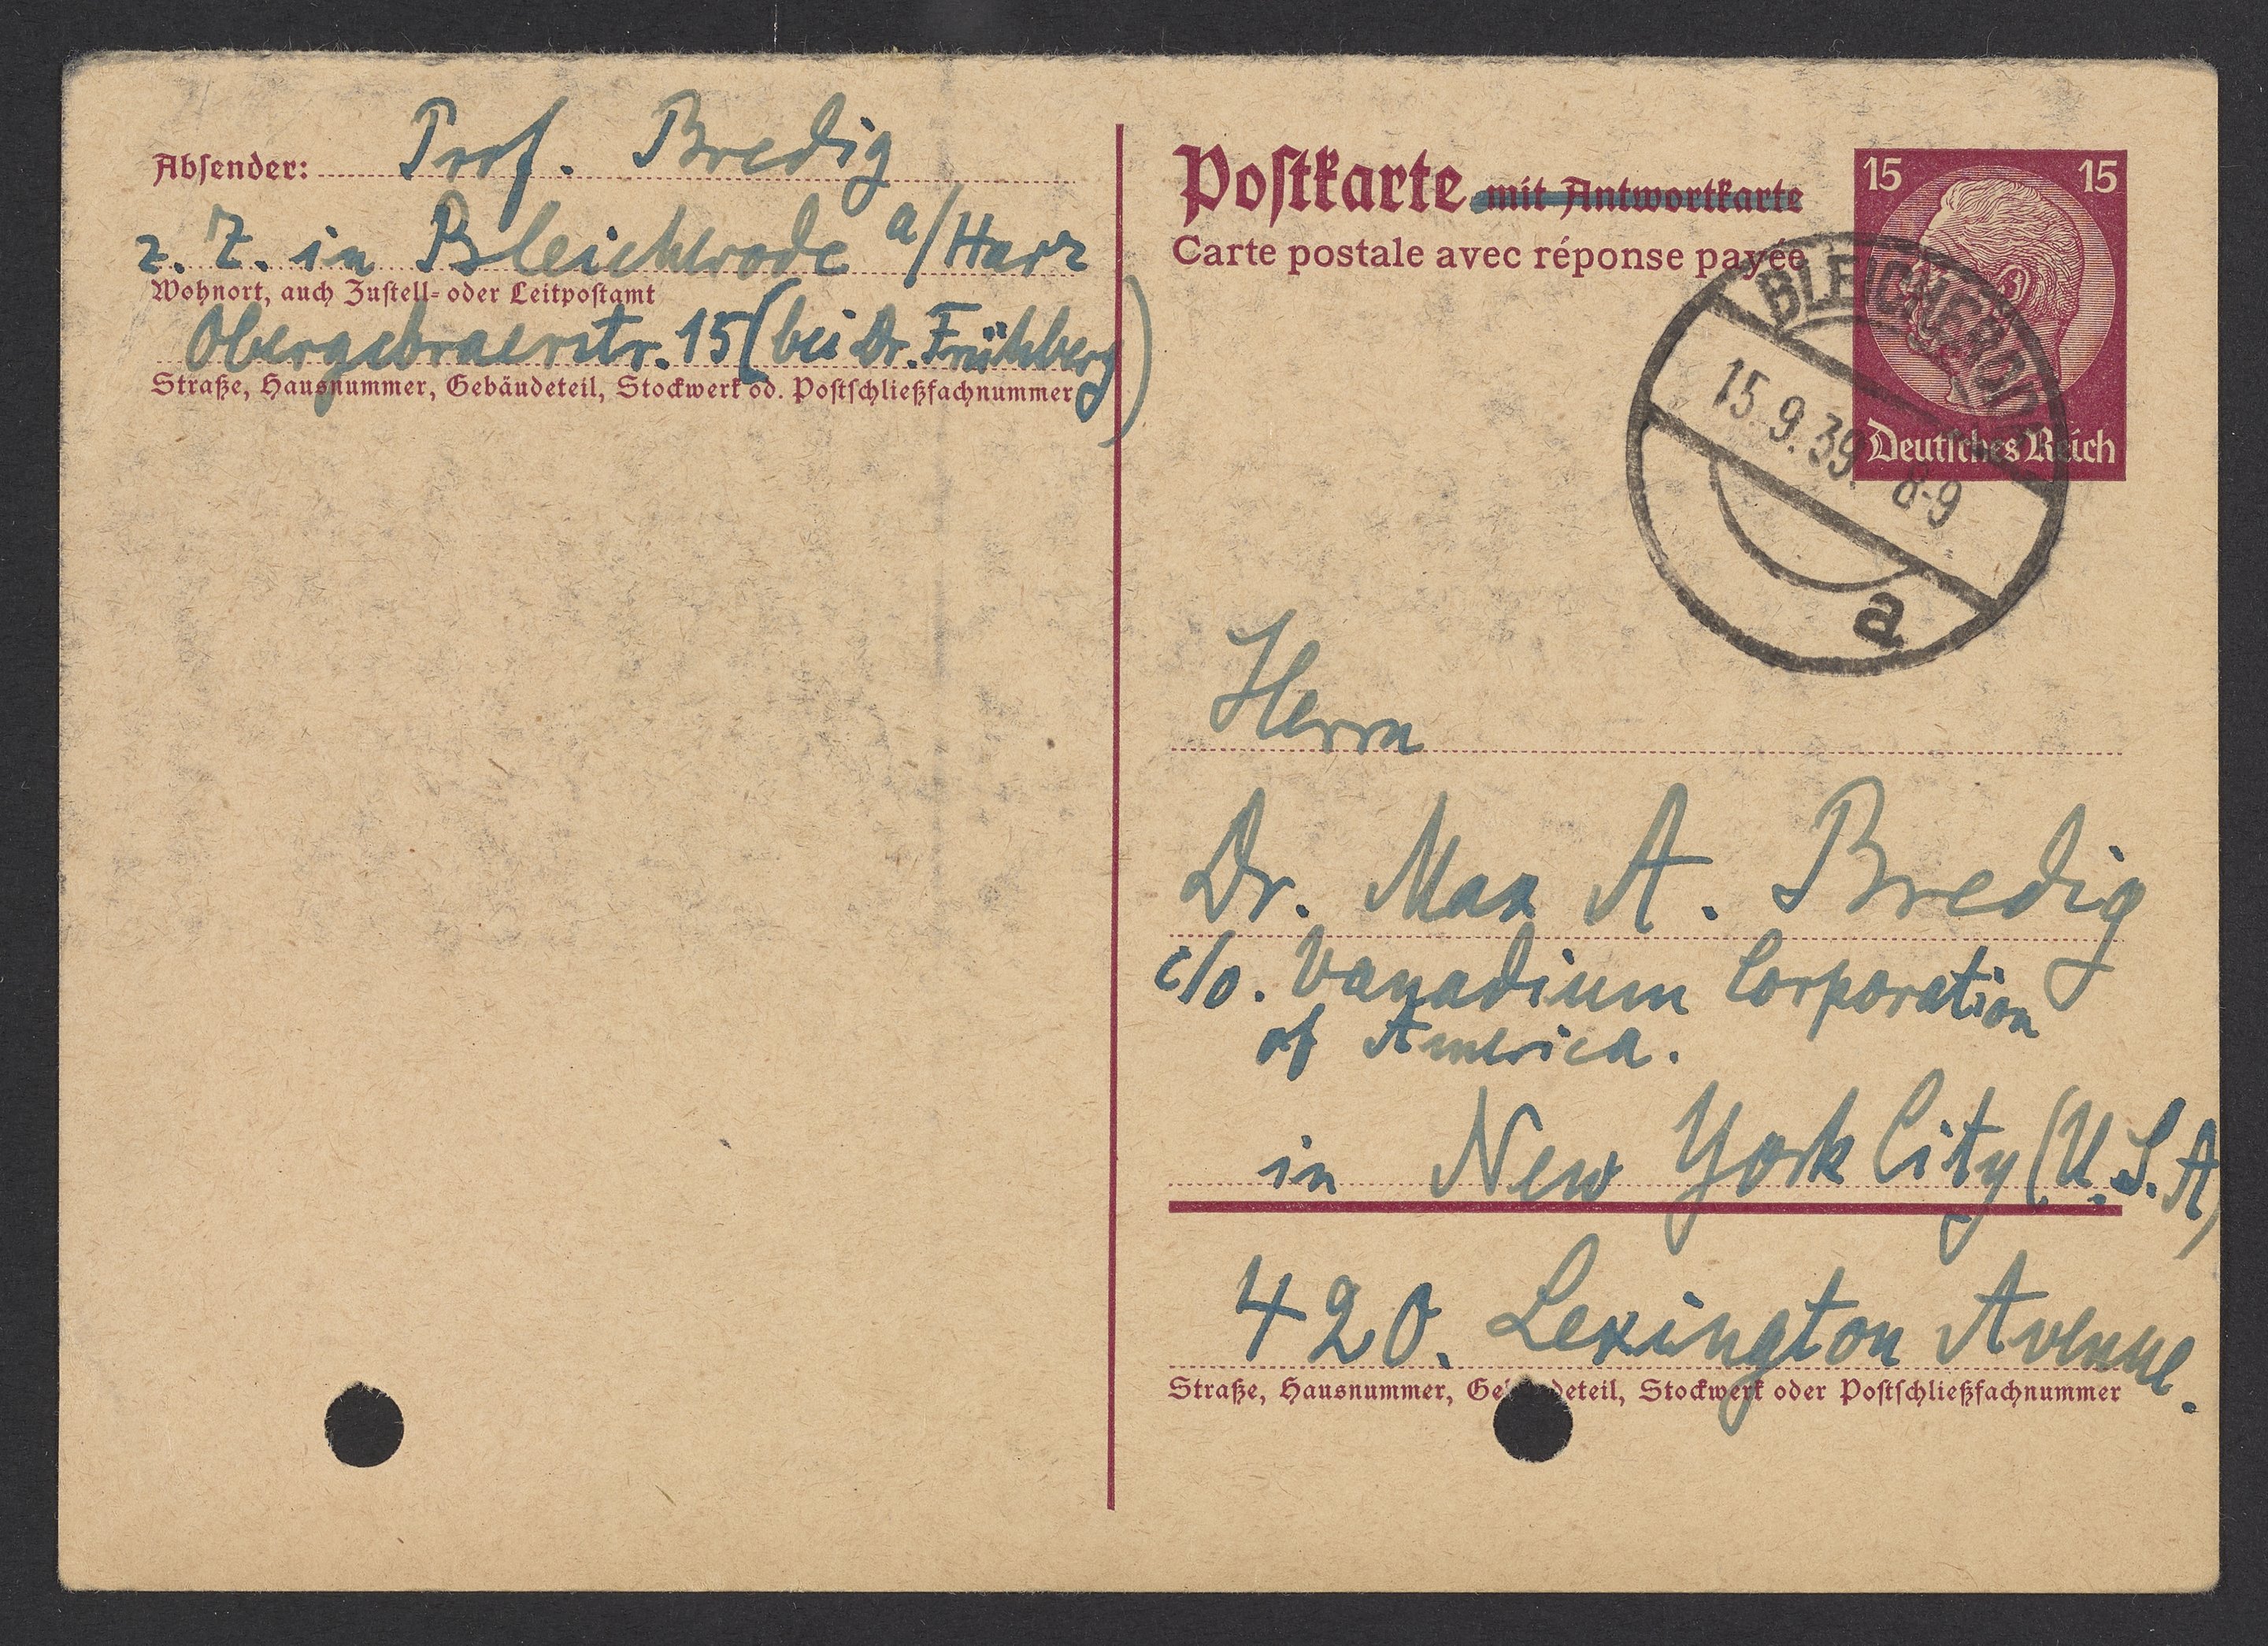 Absender: Prof. Bredig
z. Z. in Bleicherode a/Harz
Wohnort, auch Zustell- oder Leitpostamt
Obergebraerstr. 15 (bei Dr. Frühberg)
Straße, Hausnummer, Gebäudeteil, Stockwerk od. Postschließfachnummer
Postkarte mit Antwortkarte
Carte postale avec réponse payée
15 15
Deutsches Reich
BLEICHERODE
15.9.39. 8-9
a
Herrn
Dr. Max A. Bredig
c/o. Vanadium Corporation
of America.
in New York City (U.S.A)
420. Lexington Avenue.
Straße, Hausnummer, Gebäudeteil, Stockwerk oder Postschließfachnummer